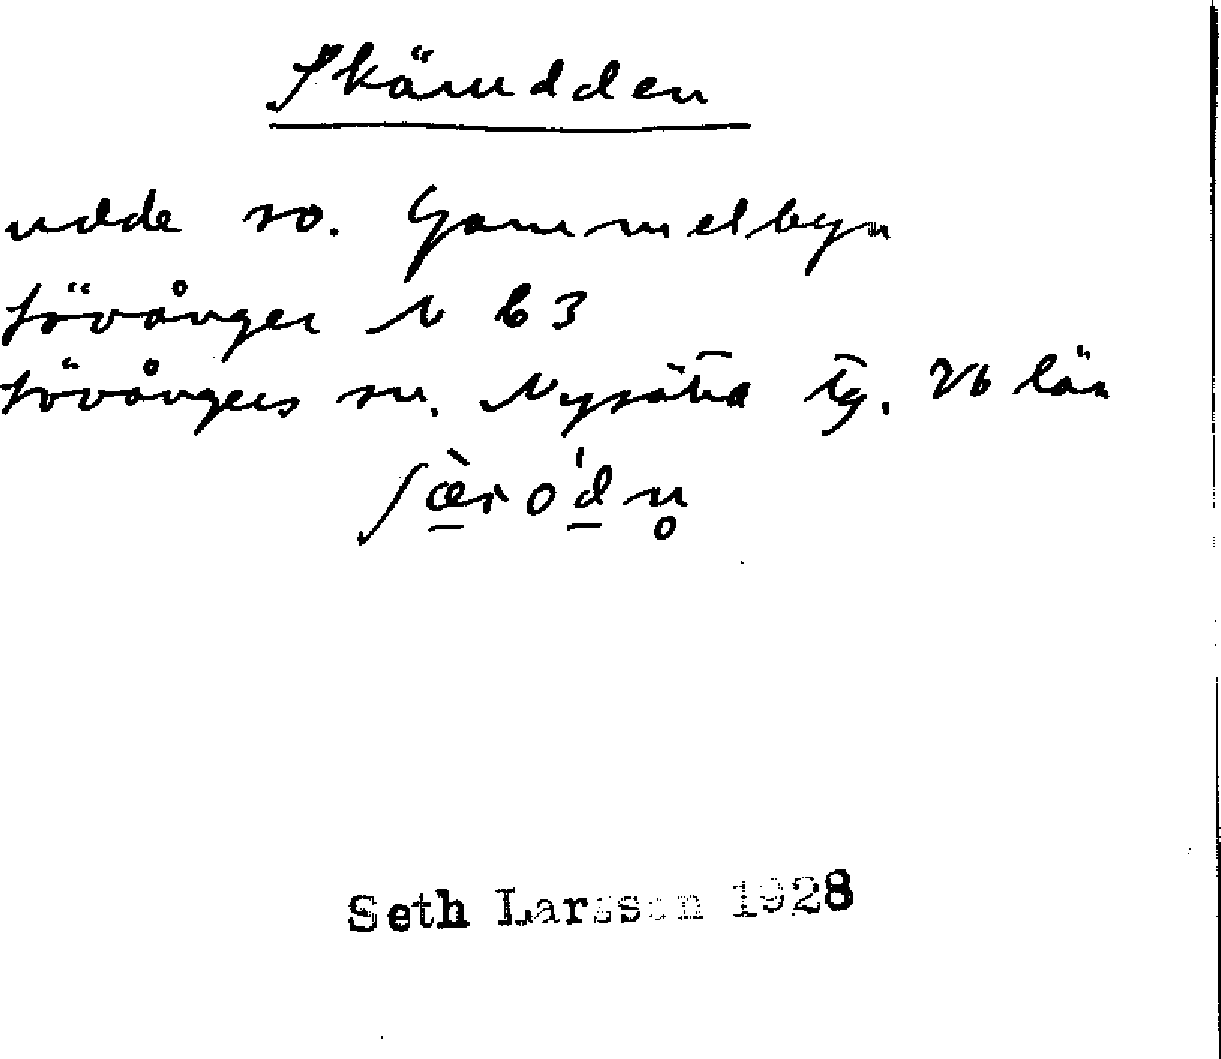 Skärudden
udde so. Gammelbyn
Lövånger N b 3
Lövångers sn. Nysätra tg. Vb län
ʃæ̀ro'dn̥
Seth Larsson 1928